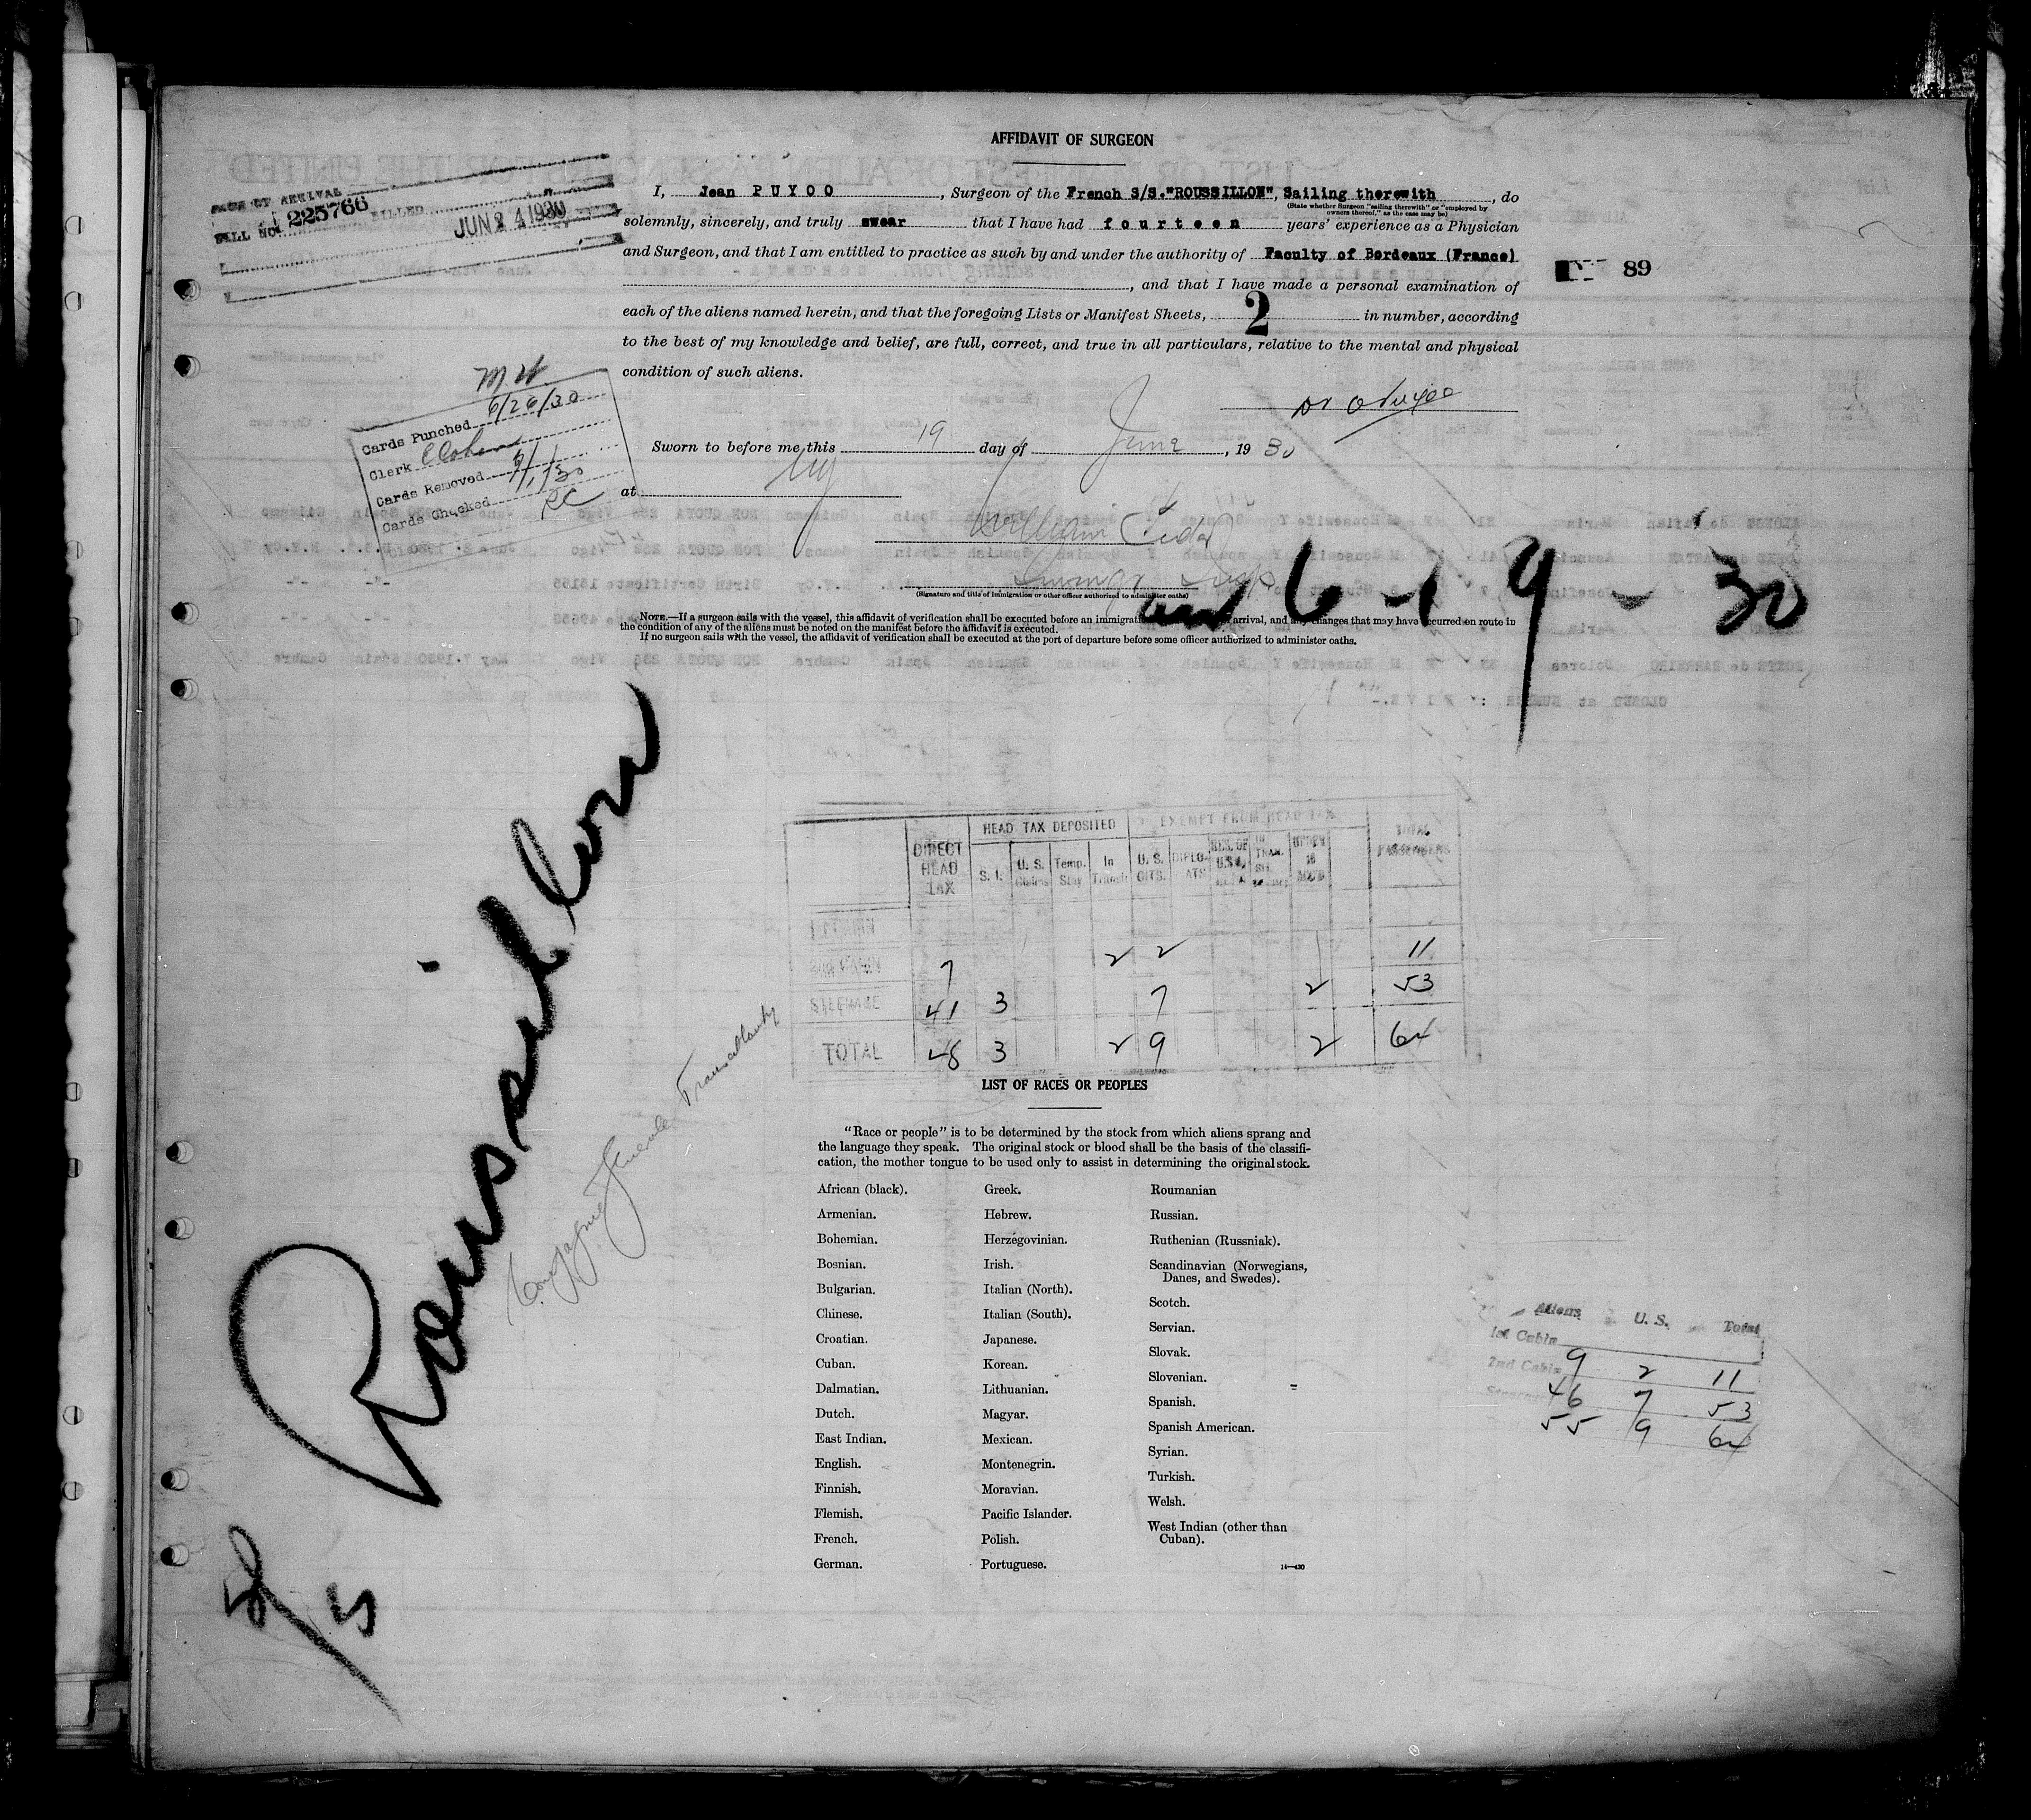 AFFIDAVIT OF SURGEON
I, Jean PUYOO, Surgeon of the French S/S."ROUSSILLON", Sailing therewith, do
(State whether Surgeon "sailing therewith" or "employed by
owners thereof," as the case may be)
solemnly, sincerely, and truly swear that I have had fourteen years' experience as a Physician
and Surgeon, and that I am entitled to practice as such by and under the authority of Faculty of Bordeaux (France)
, and that I have made a personal examination of
each of the aliens named herein, and that the foregoing Lists or Manifest Sheets, 2 in number, according
to the best of my knowledge and belief, are full, correct, and true in all particulars, relative to the mental and physical
condition of such aliens.
Sworn to before me this 19 day of June, 19 30
at NY
William
(Signature and title of immigration or other officer authorized to administer oaths)
NOTE.—If a surgeon sails with the vessel, this affidavit of verification shall be executed before an immigration arrival, and any changes that may have occurred en route in
the condition of any of the aliens must be noted on the manifest before the affidavit is executed.
If no surgeon sails with the vessel, the affidavit of verification shall be executed at the port of departure before some officer authorized to administer oaths.
BILL NO. 225766 BILLED JUN 24 1930
89
M.H.
Cards Punched 6/26/30
Clerk
Cards Removed 7/1/30
Cards Checked RC
6-19-30
Roussillon
Compagnie Generale Transatlantq
5/5
HEAD TAX DEPOSITED EXEMPT FROM HEAD TAX TOTAL PASSENGERS
DIRECT HEAD TAX S. I. U. S. Temp. Stay In Transit U. S. CITS. DIPLO-ATS
7 2 2 11
STEERAGE 41 3 7 2 53
TOTAL 48 3 2 9 2 64
LIST OF RACES OR PEOPLES
"Race or people" is to be determined by the stock from which aliens sprang and
the language they speak. The original stock or blood shall be the basis of the classifi-
cation, the mother tongue to be used only to assist in determining the original stock.
African (black).
Armenian.
Bohemian.
Bosnian.
Bulgarian.
Chinese.
Croatian.
Cuban.
Dalmatian.
Dutch.
East Indian.
English.
Finnish.
Flemish.
French.
German.
Greek.
Hebrew.
Herzegovinian.
Irish.
Italian (North).
Italian (South).
Japanese.
Korean.
Lithuanian.
Magyar.
Mexican.
Montenegrin.
Moravian.
Pacific Islander.
Polish.
Portuguese.
Roumanian
Russian.
Ruthenian (Russniak).
Scandinavian (Norwegians,
Danes, and Swedes).
Scotch.
Servian.
Slovak.
Slovenian.
Spanish.
Spanish American.
Syrian.
Turkish.
Welsh.
West Indian (other than
Cuban).
14—430
Aliens U. S. Total
1st Cabin
2nd Cabin 9 2 11
46 7 53
55 9 64